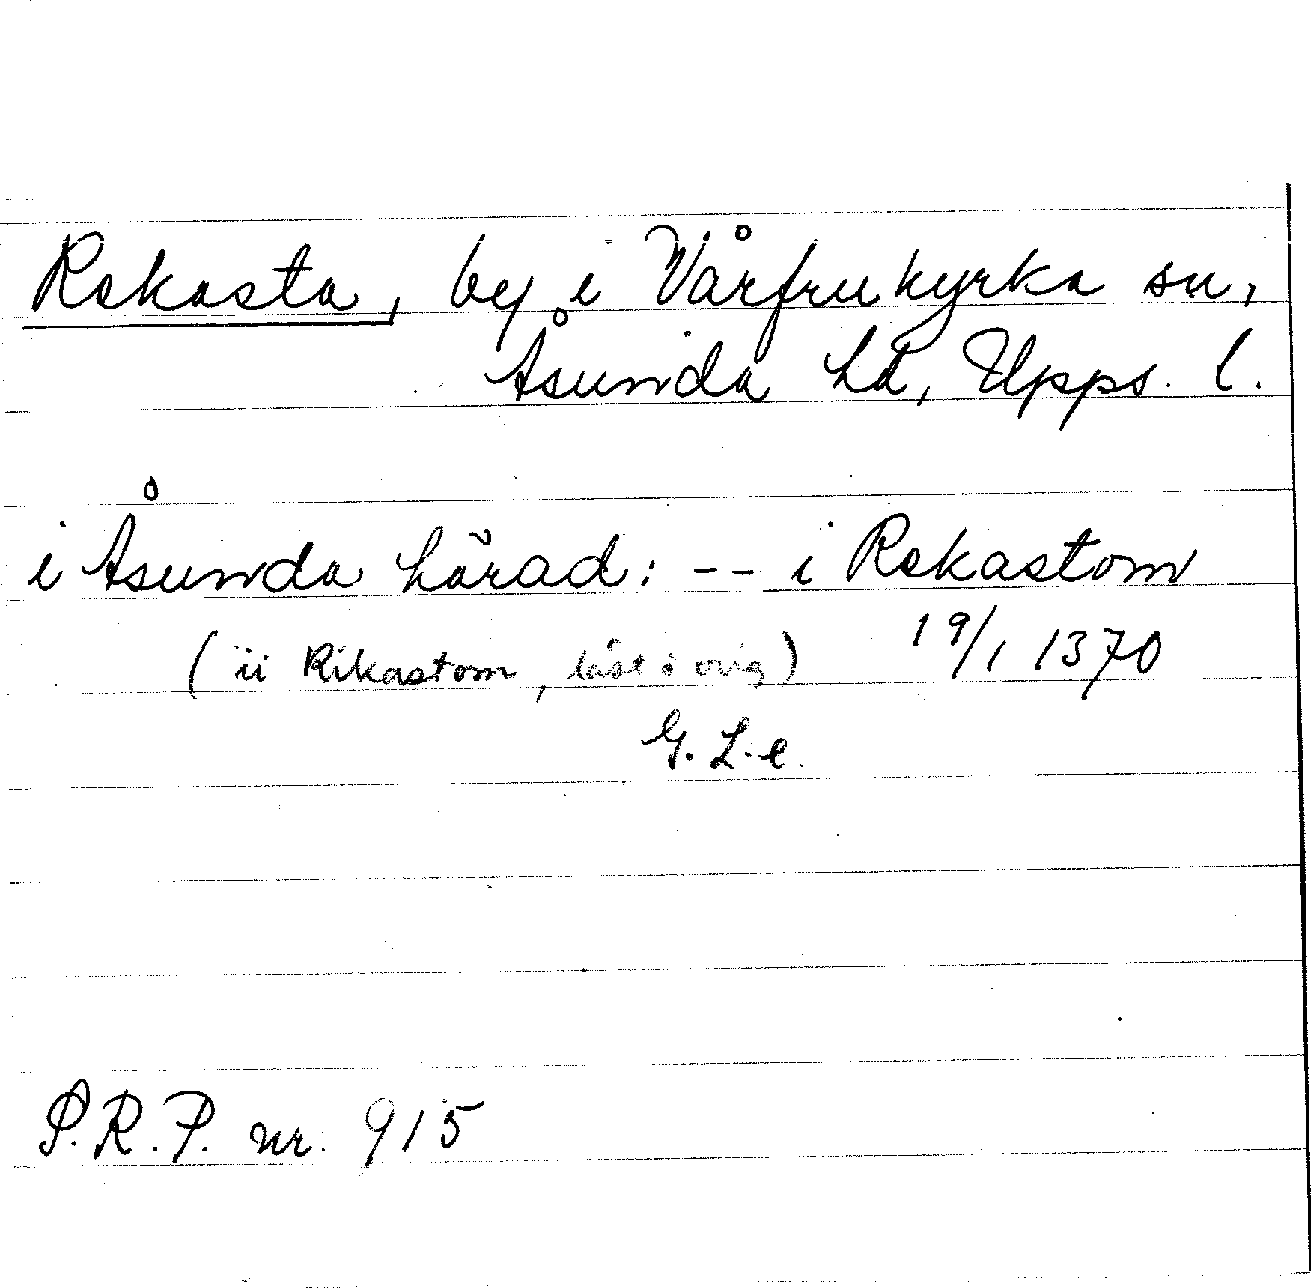 Rekasta, by i Vårfrukyrka sn,
Åsunda hd, Upps. l.
i Åsunda härad: -- i Rekastom
(ii Rikastom, läst i orig) 19/1 1370
G. L-e.
S.R.P. nr. 915